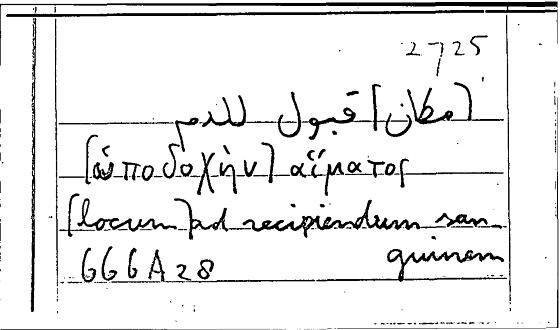 2725
[مكان] قبول للدم
[ὑποδοχὴν] αἵματος
[locum] ad recipiendum san-
guinem
666A28